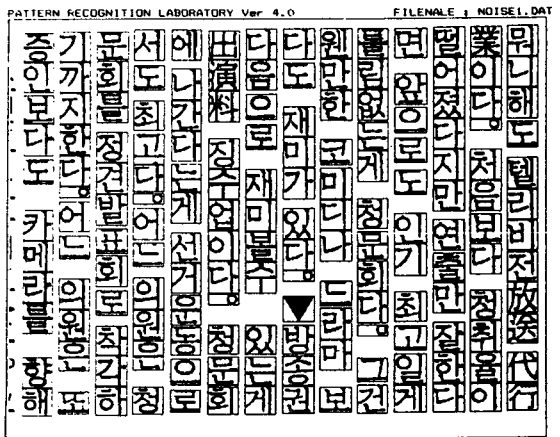 PATTERN RECOGNITION LABORATORY Ver 4.0
FILENALE : NOISE1.DAT
뭐니해도 텔리비전放送代行
業이다。 처음보다 청취율이
떨어졌다지만 연출만 잘한다
면 앞으로도 인기 최고일게
틀림없는게 청문회다。 그건
웬만한 코미디나 드라마 보
다도 재미가 있다。 ▼방송권
다음으로 재미볼수 있는게
出演料 징수업이다。 청문회
에 나간다는게 선거운동으로
서도 최고다。어느 의원은 청
문회를 정견발표회로 착각하
기까지한다。어느 의원은 또
증인보다도 카메라를 향해